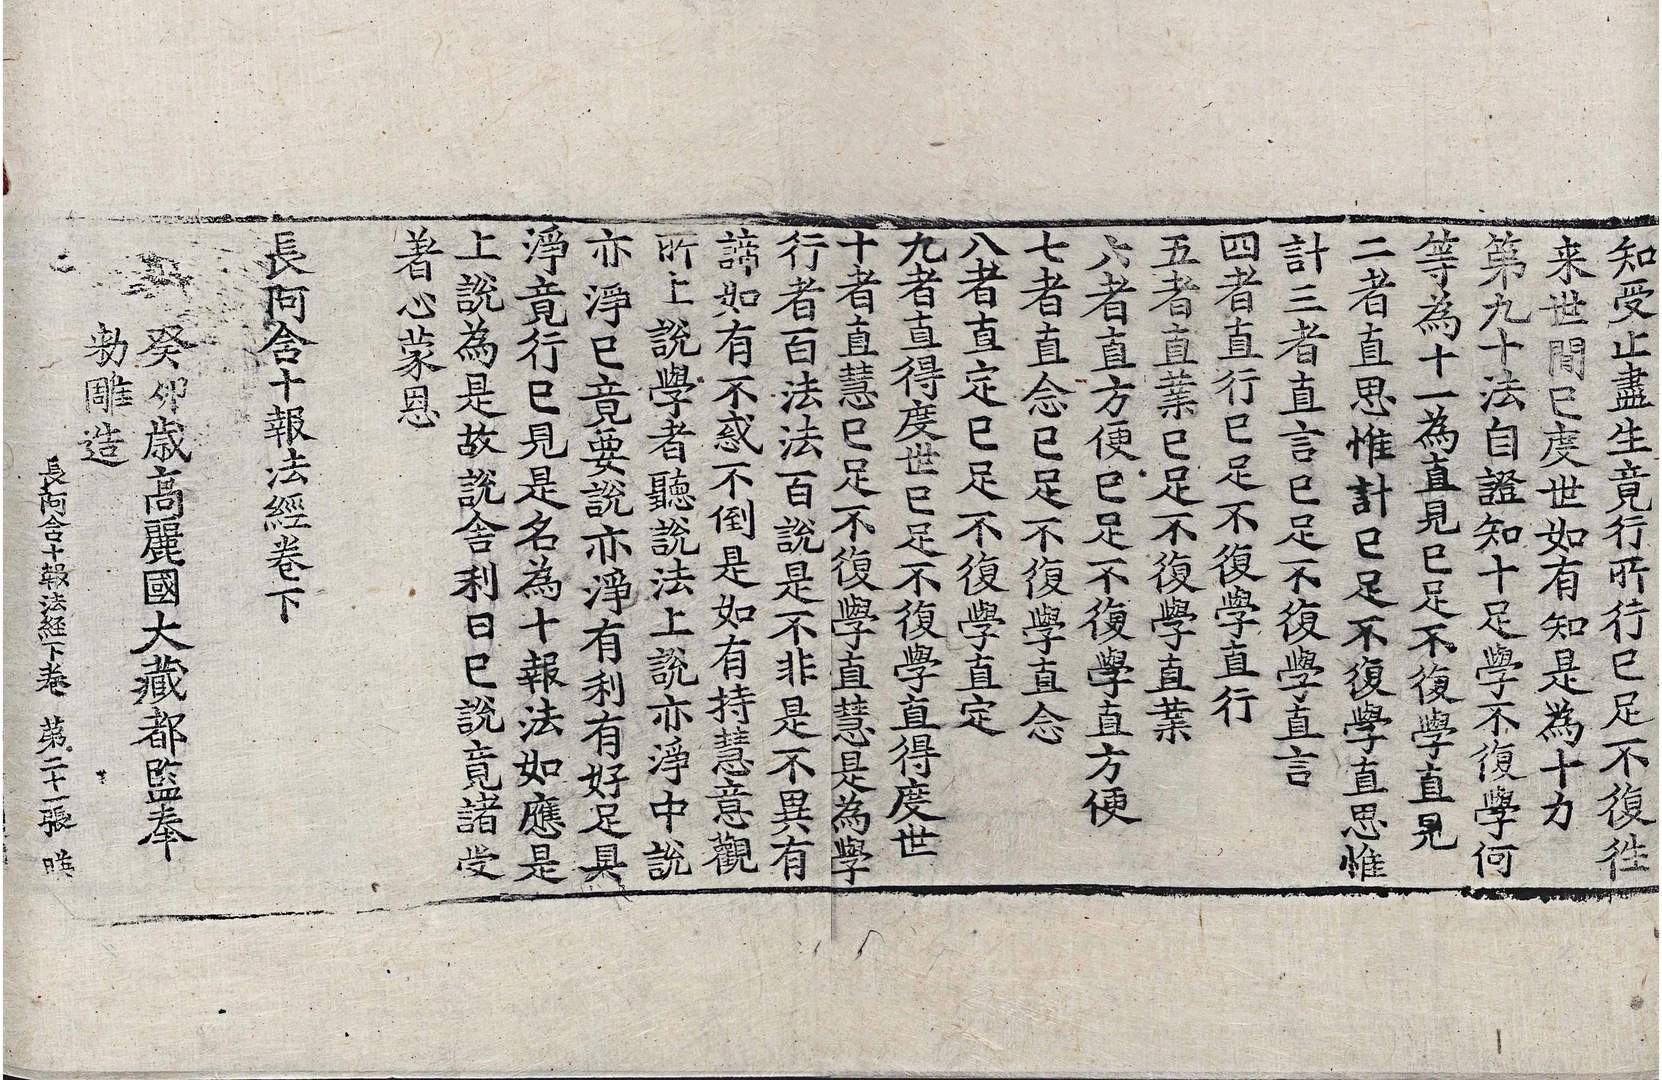 知受止盡生竟行所行已足不復往
来世間已度世如有知是為十力
第九十法自證知十足學不復學何
等為十一為直見已足不復學直見
二者直思惟計已足不復學直思惟
計三者直言已足不復學直言
四者直行已足不復學直行
五者直業已足不復學直業
六者直方便已足不復學直方便
七者直念已足不復學直念
八者直定已足不復學直定
九者直得度世已足不復學直得度世
十者直慧已足不復學直慧是為學
行者百法法百說是不非是不異有
諦如有不惑不倒是如有持慧意觀
所上說學者聽說法上說亦淨中說
亦淨已竟要說亦淨有利有好足具
淨竟行已見是名為十報法如應是
上說為是故說舍利曰已說竟諸受
著心蒙恩
長阿含十報法經卷下
癸卯歳高麗國大藏都監奉
勑雕造
長阿含十報法経下卷 第二十一張